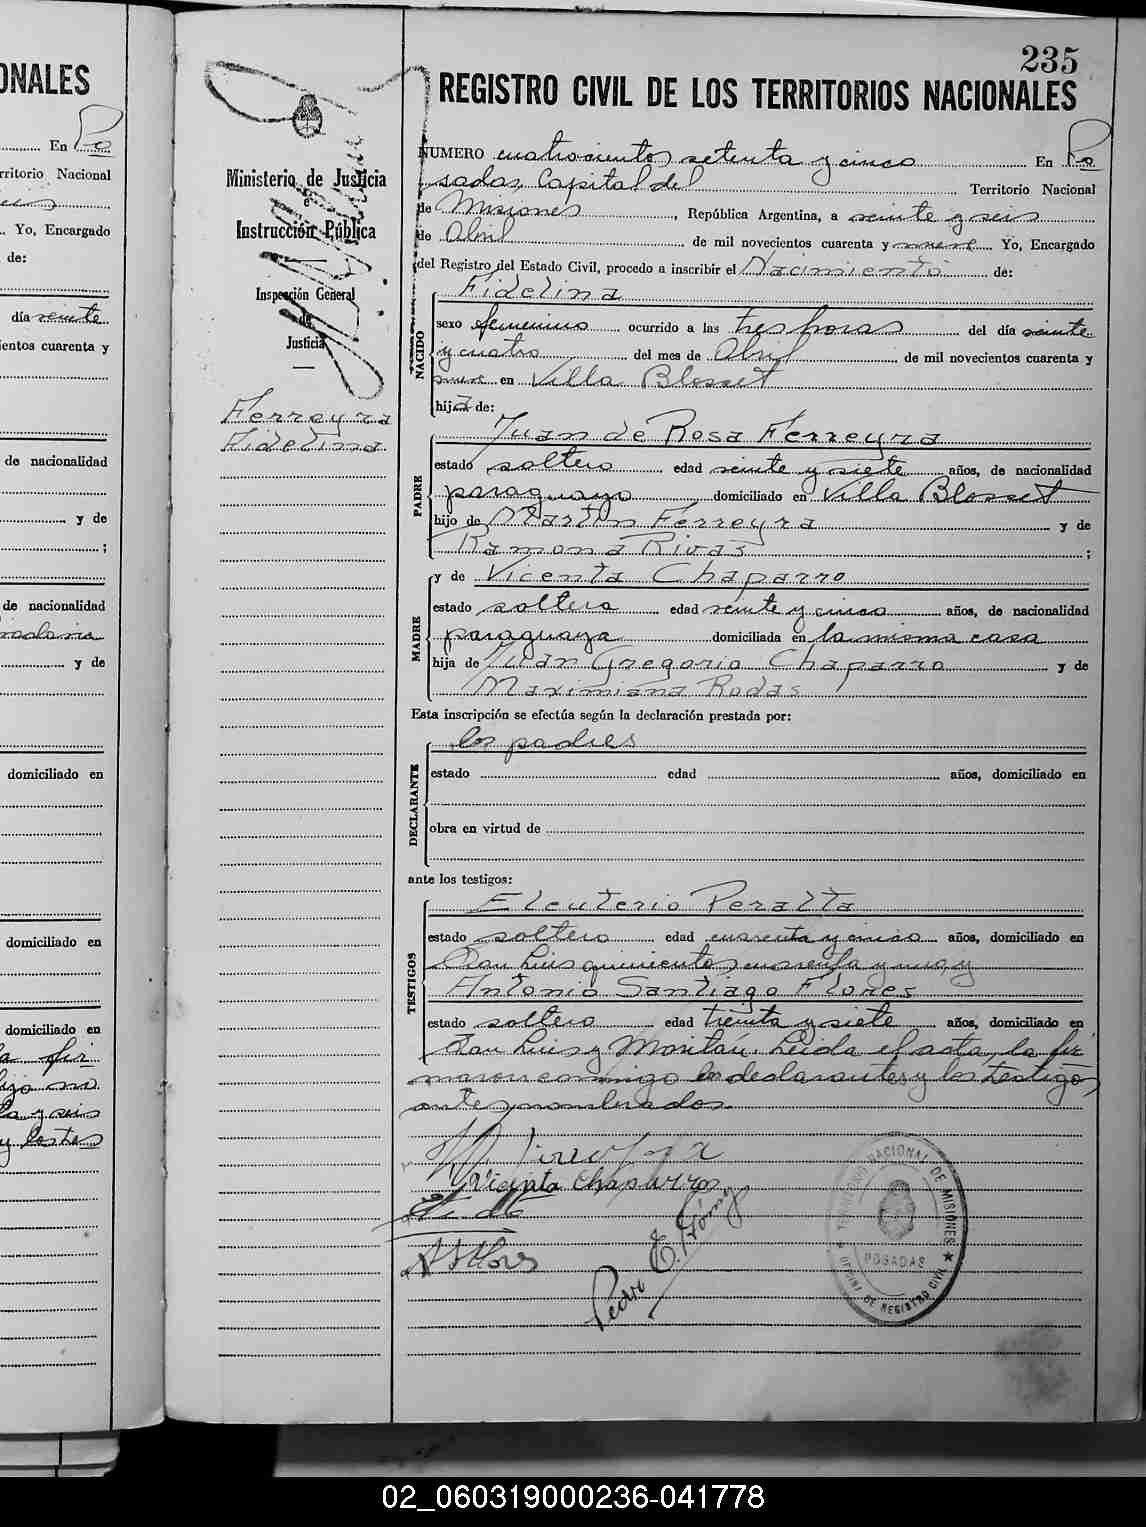 ONALES
En Po
rritorio Nacional
Yo, Encargado
de:
día veinte
ientos cuarenta y
de nacionalidad
y de
;
de nacionalidad
y de
domiciliado en
domiciliado en
domiciliado en
la fir
hijo no
y seis
y los tes
235
REGISTRO CIVIL DE LOS TERRITORIOS NACIONALES
Ministerio de Justicia
e
Instrucción Pública
Inspección General
de
Justicia
Ferreyra
Fidelina
NUMERO cuatrocientos setenta y cinco En Po
sadas, Capital del Territorio Nacional
de Misiones, República Argentina, a veinte y seis
de Abril de mil novecientos cuarenta y nueve Yo, Encargado
del Registro del Estado Civil, procedo a inscribir el Nacimiento de:
NACIDO
Fidelina
sexo femenino ocurrido a las tres horas del día veinte
y cuatro del mes de Abril de mil novecientos cuarenta y
nueve en Villa Blosset
hija de:
PADRE
Juan de Rosa Ferreyra
estado soltero edad veinte y siete años, de nacionalidad
paraguayo domiciliado en Villa Blosset
hijo de Martin Ferreyra y de
Ramona Rivas ;
MADRE
y de Vicenta Chaparro
estado soltera edad veinte y cinco años, de nacionalidad
paraguaya domiciliada en la misma casa
hija de Juan Gregorio Chaparro y de
Maximiana Rodas
Esta inscripción se efectúa según la declaración prestada por:
DECLARANTE
los padres
estado edad años, domiciliado en
obra en virtud de
ante los testigos:
TESTIGOS
Eleuterio Peralta
estado soltero edad cuarenta y cinco años, domiciliado en
San Luis quinientos cuarenta y uno, y
Antonio Santiago Flores
estado soltero edad treinta y siete años, domiciliado en
San Luis y Moritán. Leida el acta, la fir
maron conmigo los declarantes y los testigos
antes nombrados
Vicenta Chaparro
A S Flores
Pedro E. Gómez
TERRITORIO NACIONAL DE MISIONES
POSADAS
OFICINA DE REGISTRO CIVIL
02_060319000236-041778